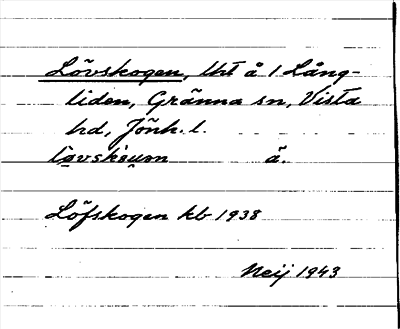 Lövskogen, lht å 1 Lång-
liden, Gränna sn, Vista
hd, Jönk. l.
å.
Löfskogen kb 1938
Neij 1943